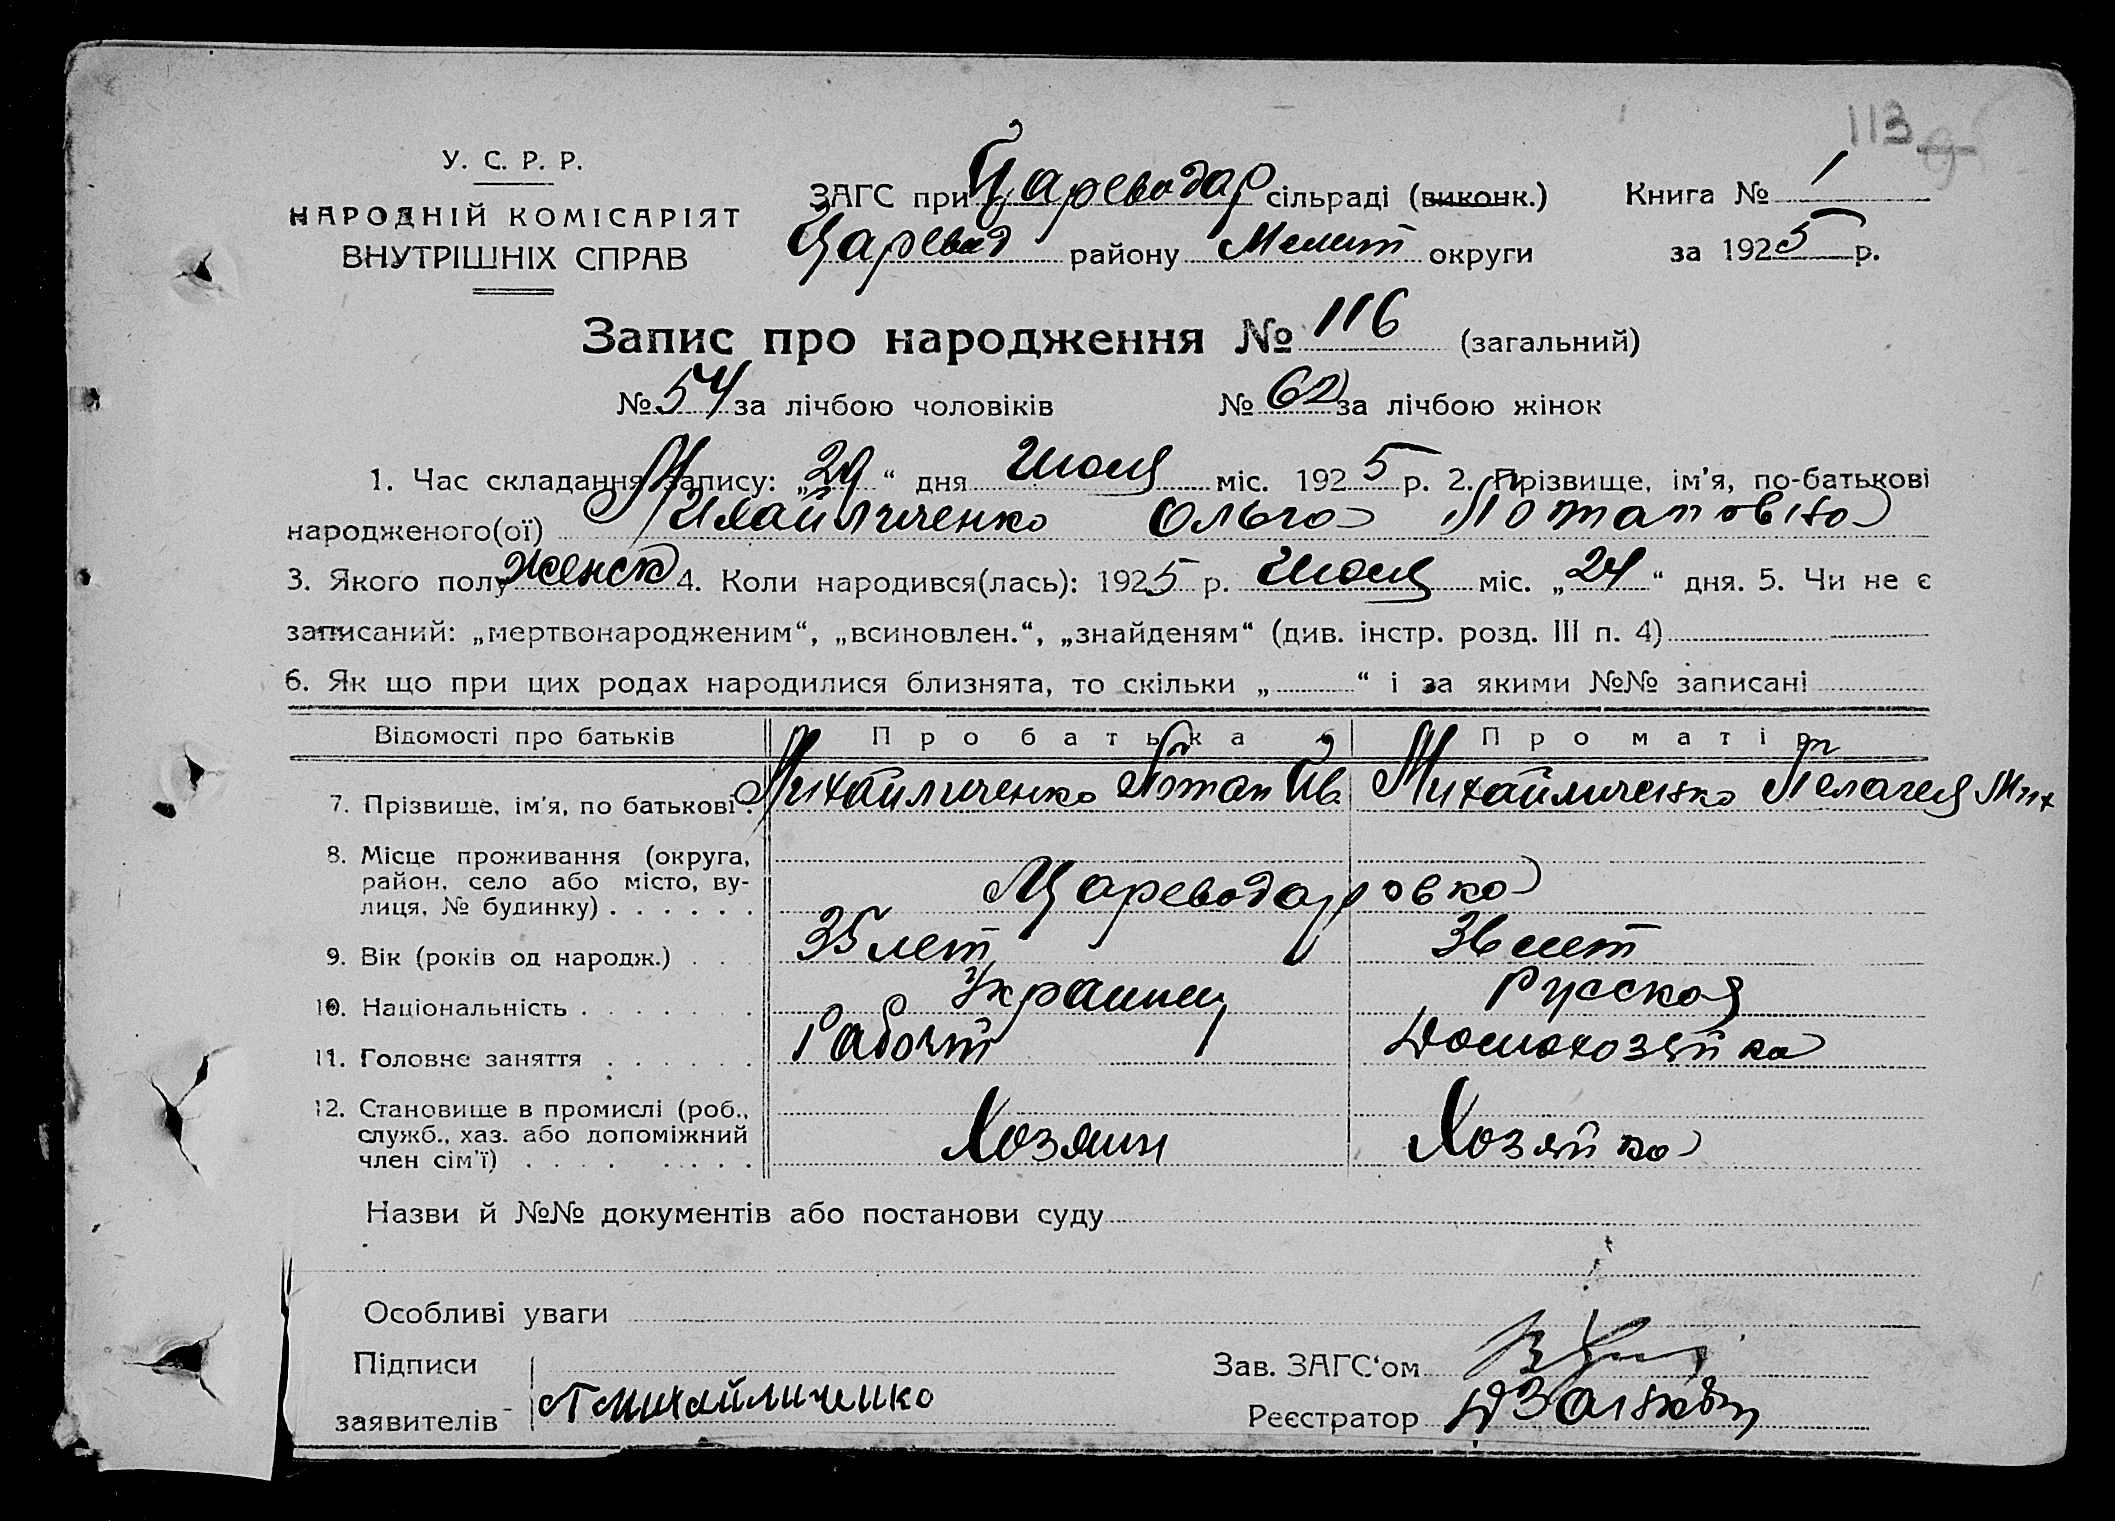 113
У. С. Р. Р.
НАРОДНІЙ КОМІСАРІЯТ
ВНУТРІШНІХ СПРАВ
ЗАГС при Цареводар сільраді (виконк.)
Царевод району Мелит округи
Книга № 1
за 1925 р.
Запис про народження № 116 (загальний)
№ 54 за лічбою чоловіків № 62 за лічбою жінок
1. Час складання запису: „29“ дня Июля міс. 1925 р. 2. Прізвище, ім'я, по-батькові
народженого(ої) Михайличенко Ольга Потаповна
3. Якого полу женск 4. Коли народився(лась): 1925 р. Июля міс. „24“ дня. 5. Чи не є
записаний: „мертвонародженим“, „всиновлен.“, „знайденям“ (див. інстр. розд. III п. 4)
6. Як що при цих родах народилися близнята, то скільки „ “ і за якими №№ записані
Відомості про батьків Про батька Про матір
7. Прізвище, ім'я, по батькові. Михайличенко Потап Ив. Михайличенко Пелагея Мих
8. Місце проживання (округа,
район, село або місто, ву-
лиця, № будинку) . . . . . . Цареводаровка
9. Вік (років од народж.) . . . 35 лет 36 лет
10. Національність . . . . . . . Украинец Русская
11. Головне заняття . . . . . . Рабочий Домохозяйка
12. Становище в промислі (роб.,
служб., хаз. або допоміжний
член сім'ї) . . . . . . . . Хозяин Хозяйка
Назви й №№ документів або постанови суду
Особливі уваги
Підписи
заявителів П Михайличенко
Зав. ЗАГС'ом
Реєстратор